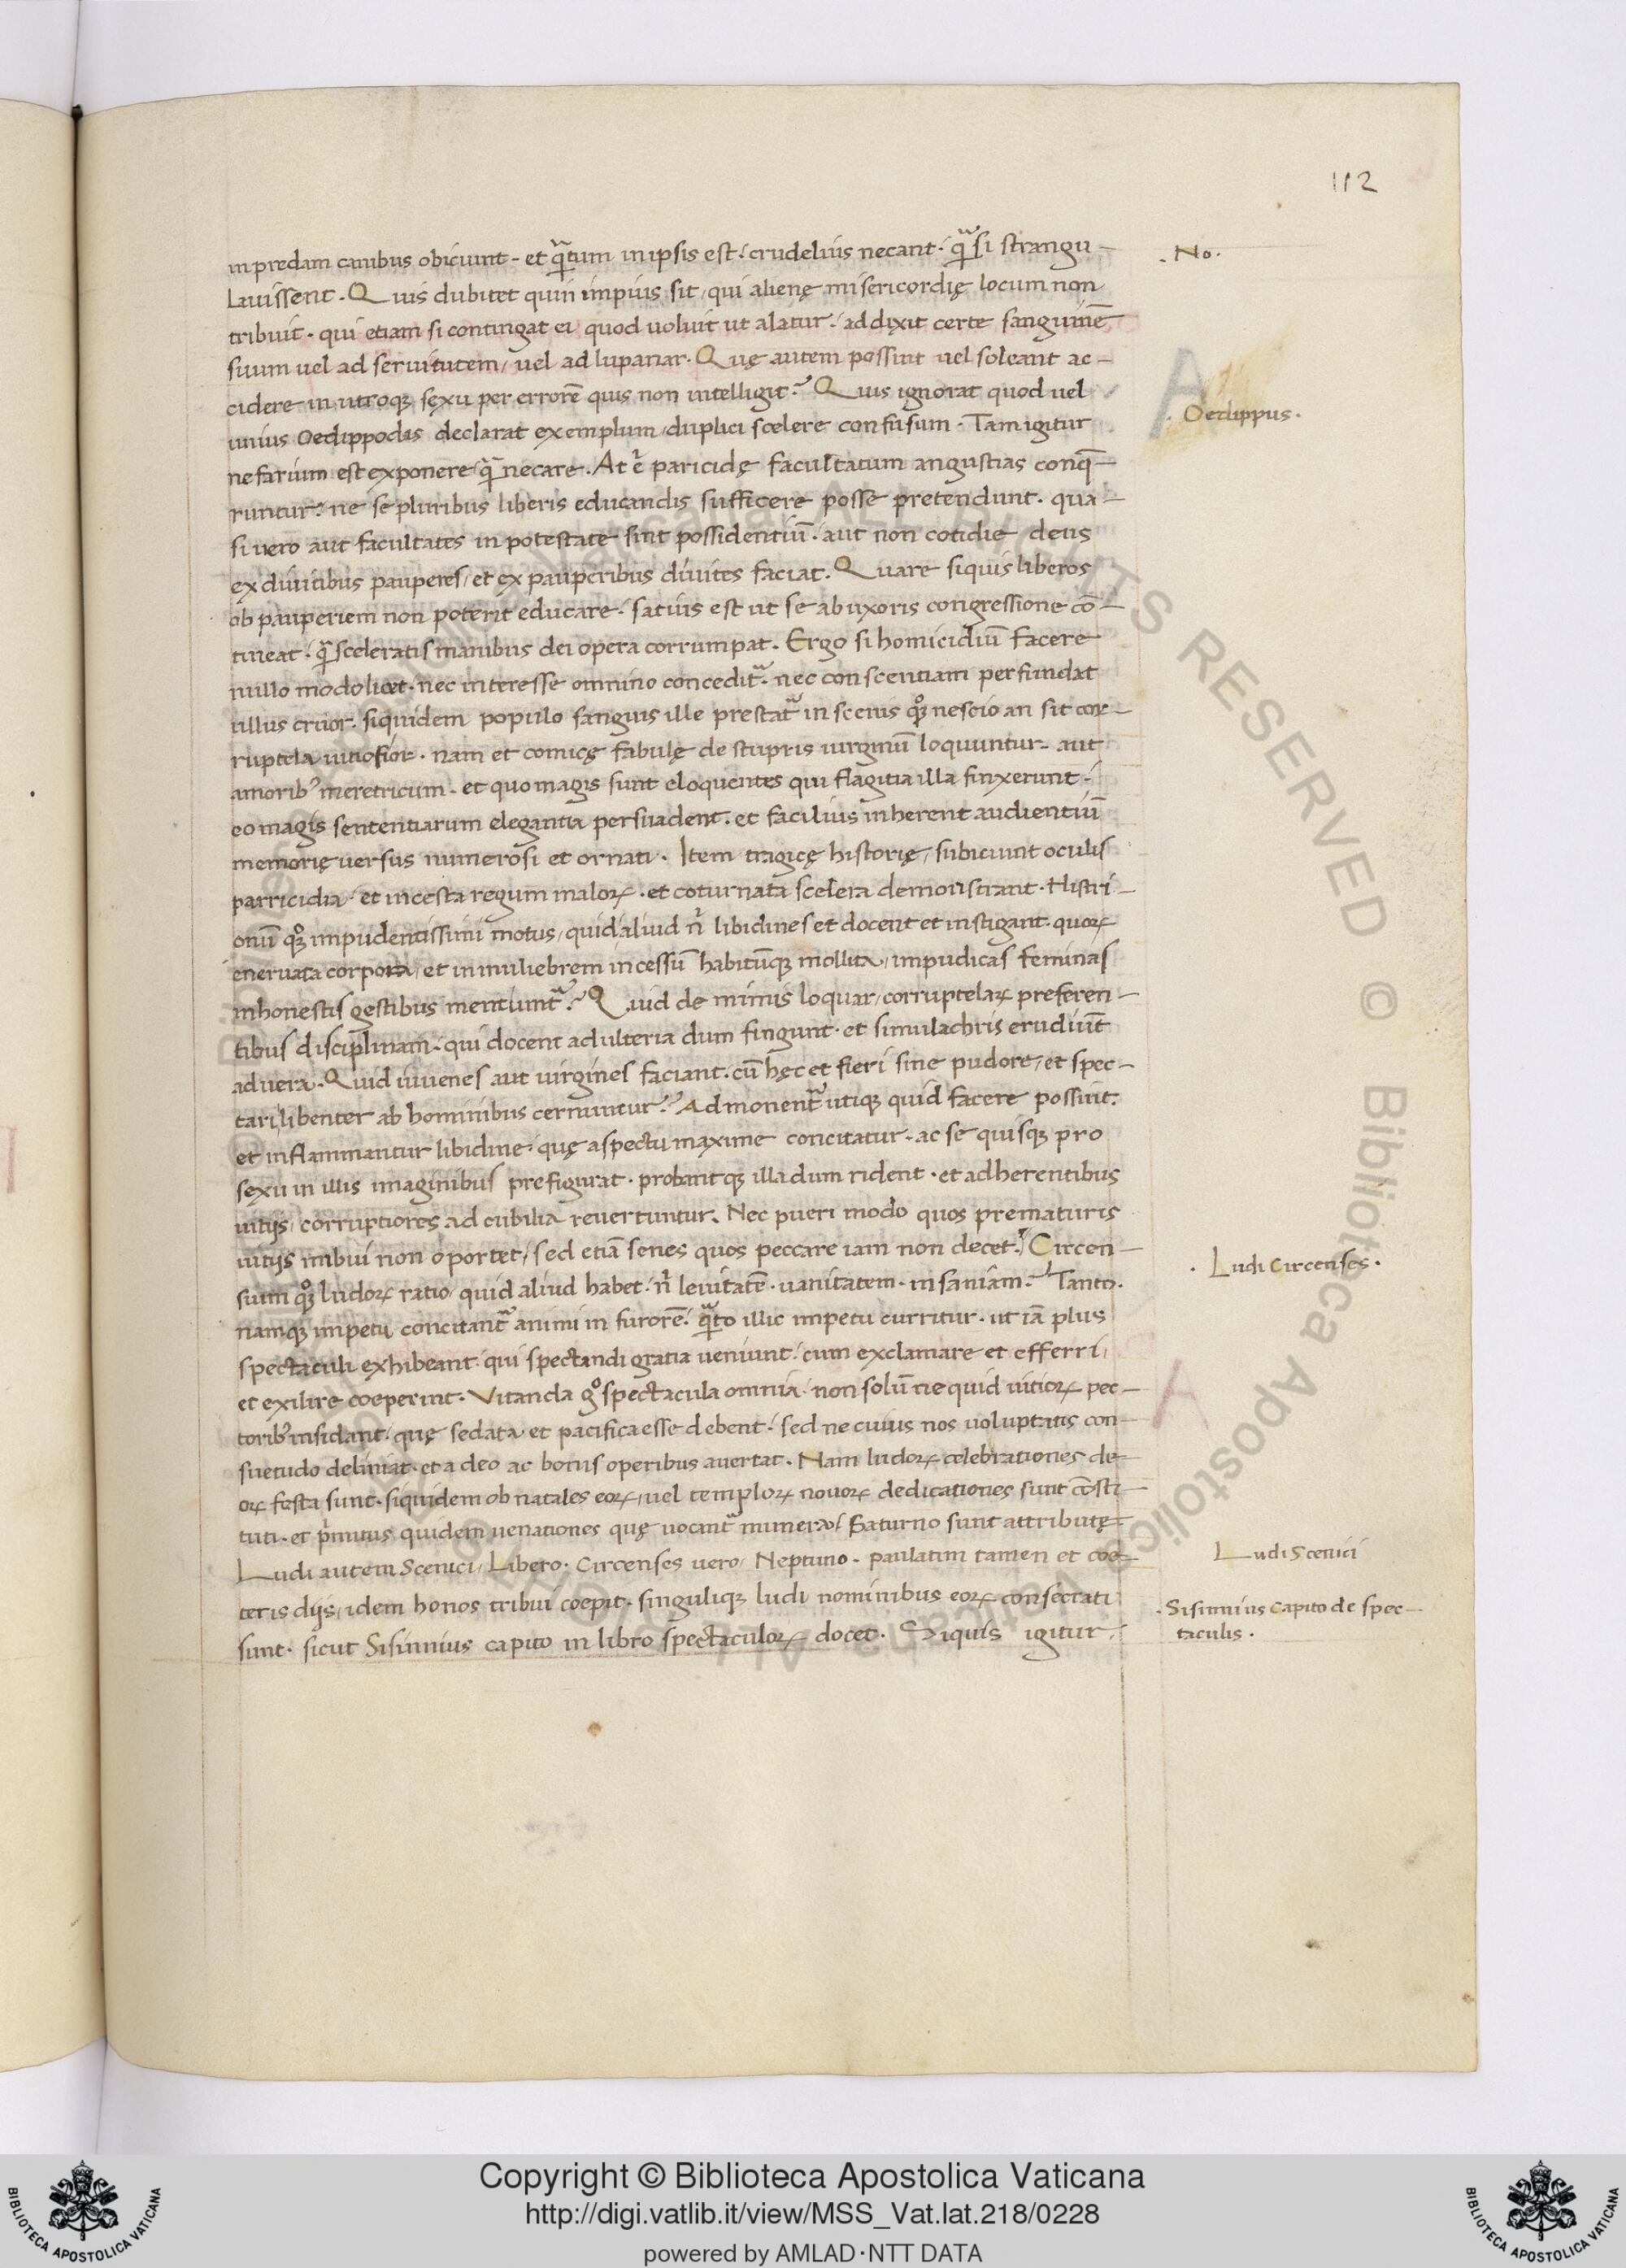 112
in predam canibus obiciunt - et qͣtum in ipsis est: crudelius necant · qͣ si strangu-
· No ·
lauissent · Quis dubitet quin impius sit, qui alienę misericordię locum non
tribuit · qui etiam si contingat ei quod uoluit ut alatur: addixit certe sanguinē
suum uel ad seruitutem, uel ad lupanar · Quę autem possint uel soleant ac-
cidere in utroqꝫ sexu per errorē quis non intelligit? Quis ignorat quod uel
· Oedippus ·
unius Oedippodis declarat exemplum, duplici scelere confusum · Tam igitur
nefarium est exponere qͣ necare. At ē paricidę facultatum angustias conq̄-
runtur: ne se pluribus liberis educandis sufficere posse pretendunt · qua-
si uero aut facultates in potestate sint possidentiū · aut non cotidie deus
ex diuitibus pauperes, et ex pauperibus diuites faciat. Quare siquis liberos
ob pauperiem non poterit educare · satius est ut se ab uxoris congressione cō-
tineat · qͣ sceleratis manibus dei opera corrumpat. Ergo si homicidiū facere
nullo modo licet · nec interesse omnino conceditᷣ · nec conscentiam perfundat
ullus cruor · siquidem populo sanguis ille prestatᷣ in scenis qͦꝫ nescio an sit cor-
ruptela uitiosior · nam et comicę fabulę de stupris uirginū loquuntur - aut
amoribꝰ meretricum - et quo magis sunt eloquentes qui flagitia illa finxerunt:
eo magis sententiarum elegantia persuadent. et facilius inherent audientiū
memorię uersus numerosi et ornati · Item tragicę historię, subiciunt oculis
parricidia · et incesta regum maloꝝ · et coturnata scelera demonstrant · Histri-
onū qͦꝫ impudentissimi motus, quid aliud nͥ libidines et docent et instigant · quoꝝ
eneruata corpora, et in muliebrem incessū habitūqꝫ mollita, impudicas feminas
inhonestis gestibus mentiuntᷣ? Quid de mimis loquar, corruptelaꝝ preferen-
tibus disciplinam · qui docent adulteria dum fingunt · et simulachris erudiūt
ad uera · Quid iuuenes aut uirgines faciant · cū hęc et fieri sine pudore, et spec-
tari libenter ab hominibus cernuntur? Admonentᷣ utiqꝫ quid facere possint:
et inflammantur libidine · quę aspectu maxime concitatur - ac se quisqꝫ pro
sexu in illis imaginibus prefigurat · probantqꝫ illa dum rident · et adherentibus
uitijs, corruptiores ad cubilia reuertuntur. Nec pueri modo quos prematuris
uitijs imbui non oportet, sed etiā senes quos peccare iam non decet. Circen-
· Ludi Circenses ·
sium qͦꝫ ludoꝝ ratio, quid aliud habet · nͥ leuitatē · uanitatem · insaniam? Tanto
namqꝫ impetu concitantᷣ animi in furorē: qͣto illic impetu curritur · ut iā plus
spectaculi exhibeant · qui spectandi gratia ueniunt · cum exclamare et efferri
et exilire coeperint. Vitanda gͦ spectacula omnia · non solū ne quid uitioꝝ pec-
toribꝰ insidant · quę sedata et pacifica esse debent: sed ne cuius nos uoluptatis con-
suetudo deliniat · et a deo ac bonis operibus auertat · Nam ludoꝝ celebrationes de-
oꝝ festa sunt · siquidem ob natales eoꝝ, uel temploꝝ nouoꝝ dedicationes sunt cōsti-
tuti · et pͥmitus quidem uenationes quę uocantᷣ munera, Saturno sunt attributę
Ludi autem Scenici, Libero · Circenses uero, Neptuno · paulatim tamen et coe-
Ludi Scenici
teris dijs, idem honos tribui coepit · singuliqꝫ ludi nominibus eoꝝ consecrati
· Sisinnius Capito de spec-
taculis ·
sunt · sicut Sisinnius capito in libro spectaculoꝝ docet · Siquis igitur
Copyright © Biblioteca Apostolica Vaticana
http://digi.vatlib.it/view/MSS_Vat.lat.218/0228
powered by AMLAD·NTT DATA
BIBLIOTECA APOSTOLICA VATICANA
BIBLIOTECA APOSTOLICA VATICANA